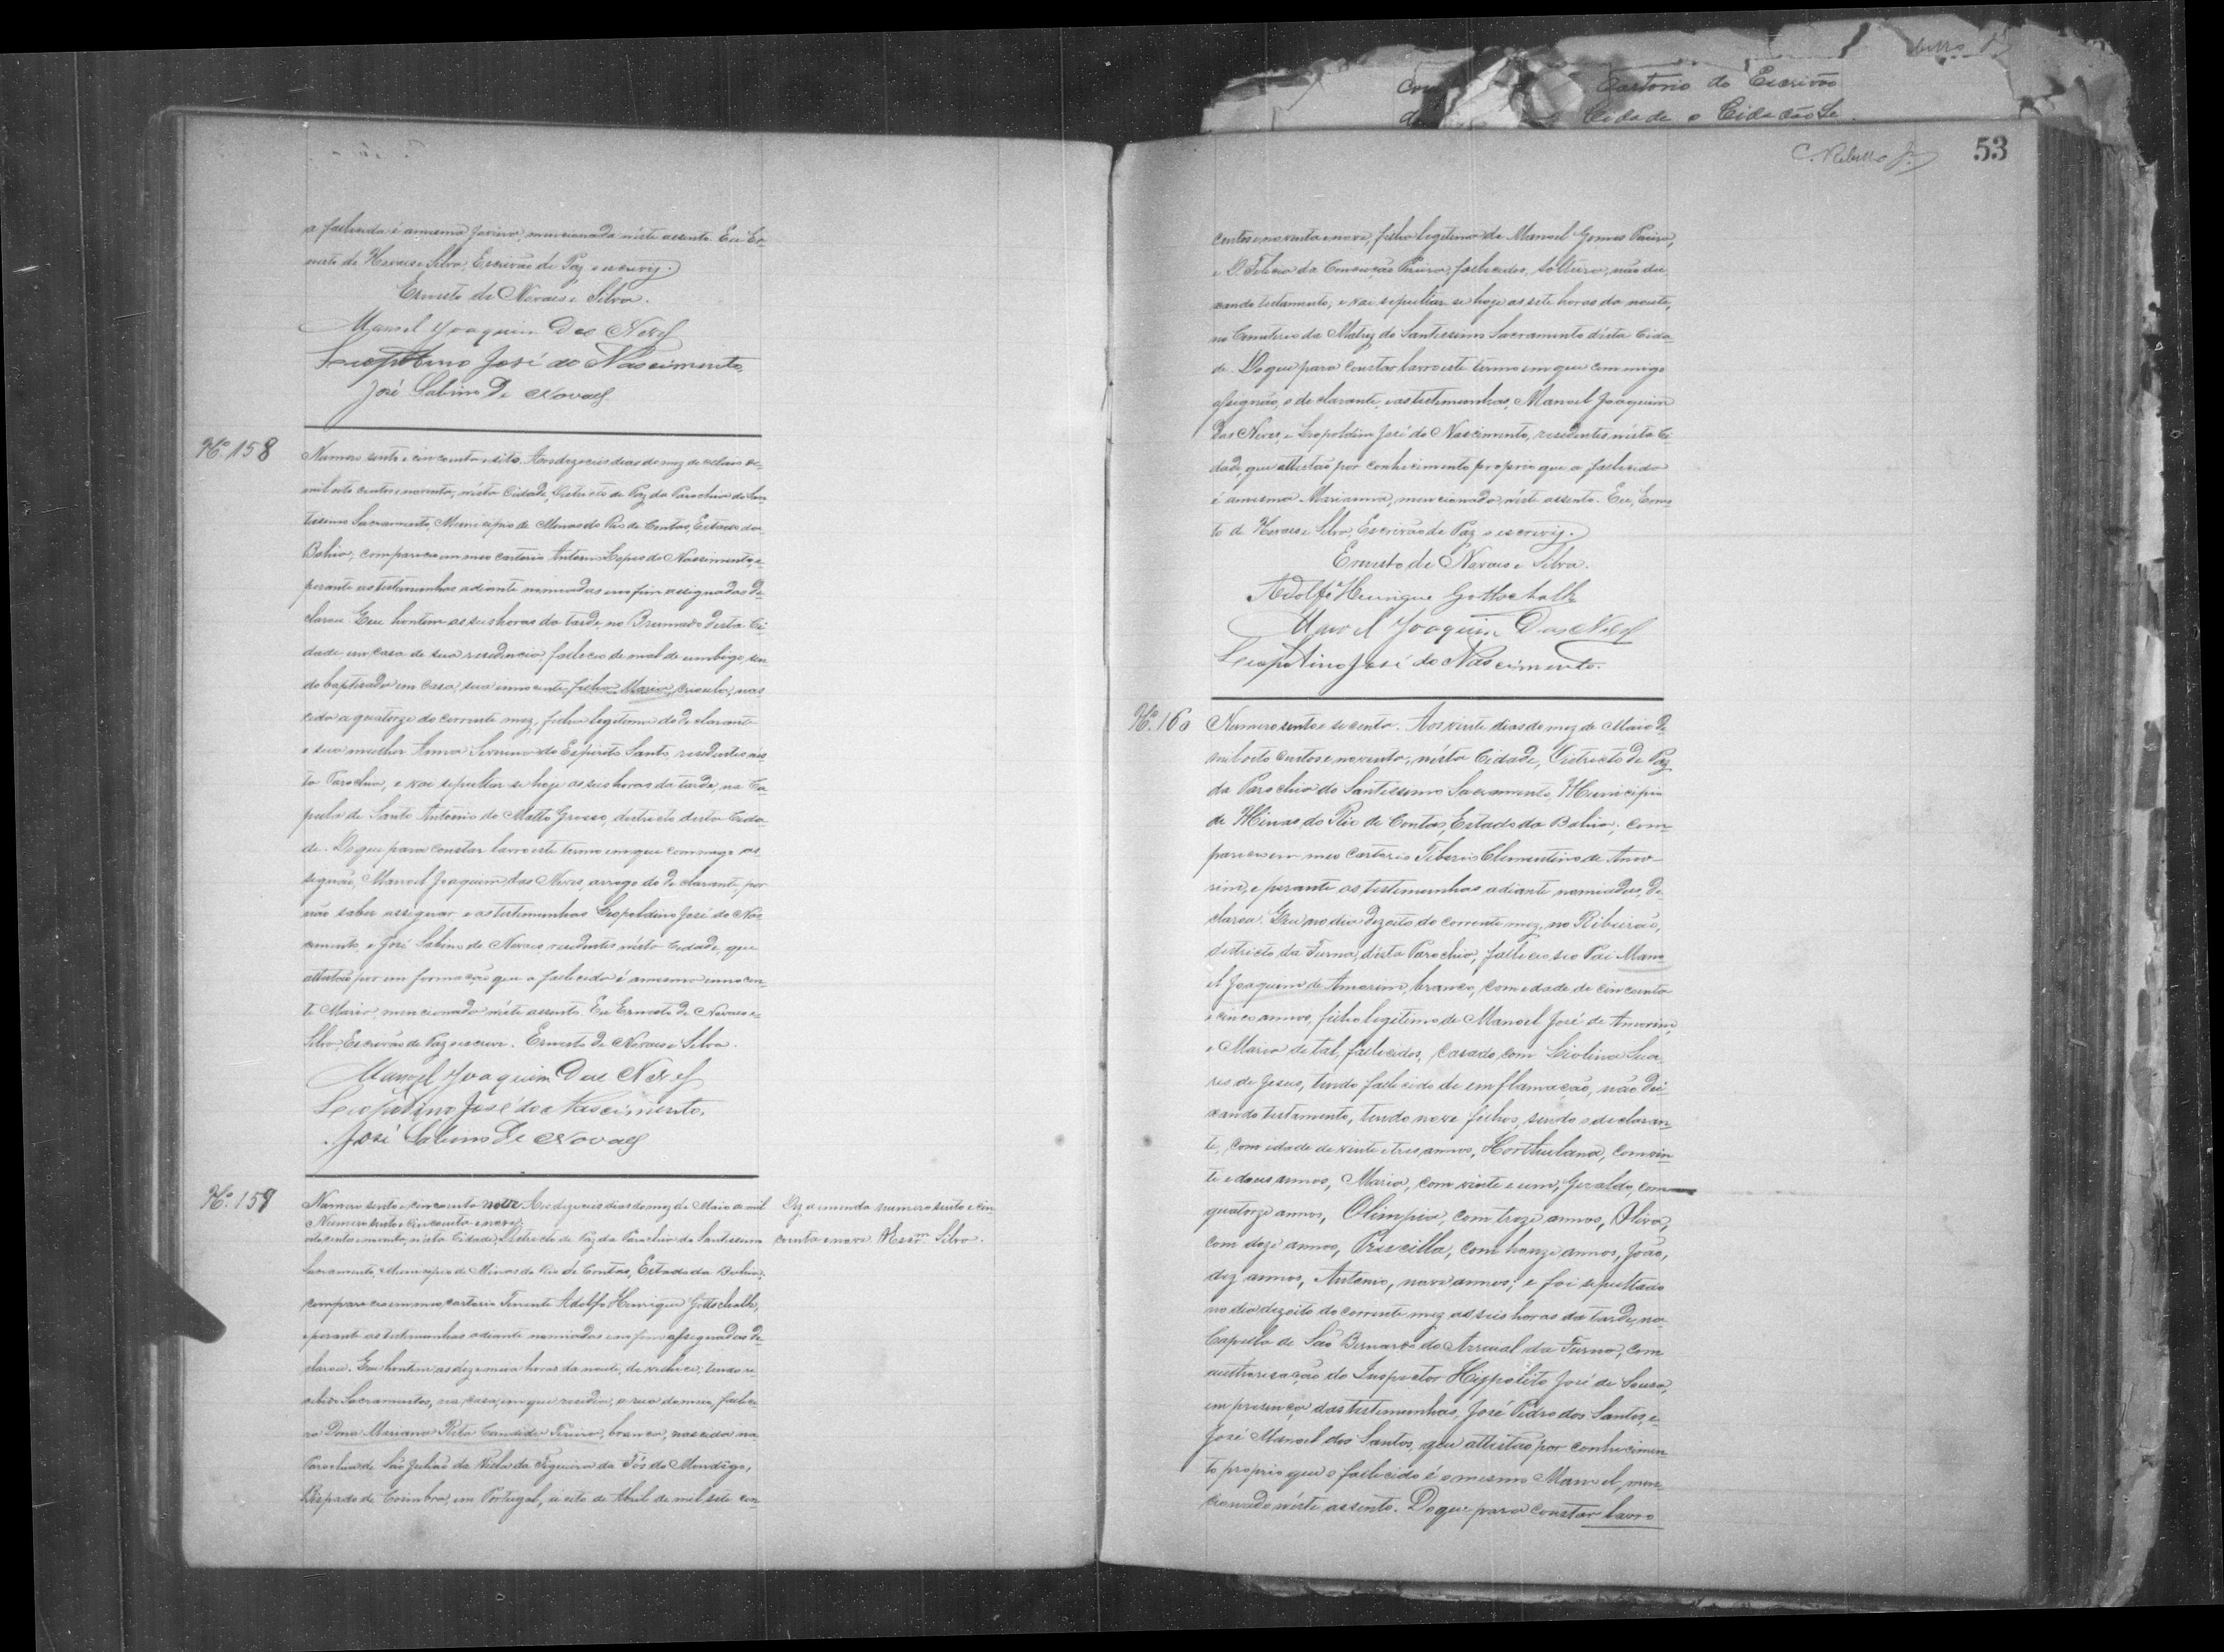 a fallecida é a mesma Janeiro, mencionada néste assento. Eu Er-
nesto de Novaes e Silva, Escrivão de Paz o escrevi.
Ernesto de Novaes e Silva.
Manoel Joaquim Das Neves
Leopoldino José do Nascimento
José Sabino De Novaes
Nº 158
Numero cento e cincoenta e oito. Aos dezeseis dias do mez de Maio de
mil oito centos e noventa, nésta Cidade, Districto de Paz da Parochia do San-
tissimo Sacramento, Municipio de Minas do Rio de Contas, Estado da
Bahia, compareceu em meo cartorio Antonio Lopes do Nascimento, e
perante as testemunhas adiante nomiadas e no fim assignadas de-
clarou: Que hontem as seis horas da tarde, no Brumado desta Ci-
dade em casa de sua residencia, falleceo de mal de umbigo, sen-
do baptisada em casa, sua innocente filha Maria, crioula, nas-
cida a quatorze do corrente mez, filha legitima do declarante
e sua mulher Anna Serrena do Espirito Santo, residentes nes-
ta Parochia, e vai sepultar-se hoje as seis horas da tarde, na Ca-
pella de Santo Antonio do Matto Grosso, districto desta Cida-
de. Do que para constar lavro este termo em que commigo as-
signão, Manoel Joaquim das Neves, a rogo do declarante, por
não saber assignar e as testemunhas Leopoldino José do Nas-
cimento, e José Sabino de Novaes, residentes nésta Cidade, que
attestão por informação que a fallecida é a mesma innocen-
te Maria mencionada néste assento. Eu Ernesto de Novaes e
Silva, Escrivão de Paz o escrevi. Ernesto de Novaes e Silva.
Manoel Joaquim Das Neves
Leopoldino José do Nascimento.
José Sabino De Novaes
Nº 159
Numero cento e cincoenta nove. Aos dezeseis dias do mez de Maio de mil
Numero cento e cincoenta e nove
oito centos e noventa, nésta Cidade, Districto de Paz da Parochia do Santissimo
Sacramento, Municipio de Minas do Rio de Contas, Estado da Bahia,
compareceo em meo cartorio Tenente Adolfo Henrique Gottschalk,
e perante as testemunhas adiante nomiadas e no fim assignadas de-
clarou. Que hontem as dez e meia horas da noute, de velhice, tendo re-
cebido Sacramentos, na casa em que residia, a rua da
ra Dona Mariana Rita Candida Pereira, branca, nascida na
Parochia de São Julião da Villa da Figueira da Fós do Mondêgo,
Bispado de Coimbra, em Portugal, a oito de Abril de mil sete cen-
Diz a emenda numero cento e cin-
coenta e nove. Silva.
C. Rebello Jr.
53
Cartorio do Escrivão
Cidade o Cidadão
centos e noventa e nove, filha legitima de Manoel Gomes Pereira,
e D. Felicia da Conceição Pereira, fallecidos, solteira, não dei-
xando testamento; e vai sepultar-se hoje as sete horas da noute,
no Cemiterio da Matriz do Santissimo Sacramento désta Cida-
de. Do que para constar lavro este termo em que commigo
assignão, o declarante, e as testemunhas, Manoel Joaquim
das Neves, e Leopoldino José do Nascimento, residentes nésta Ci-
dade, que attestão por conhecimento proprio que a fallecida
é a mesma Marianna, mencionada néste assento. Eu, Ernes-
to de Novaes e Silva, Escrivão de Paz o escrevi.
Ernesto de Novaes e Silva.
Adolfo Henrique Gottschalk
Manoel Joaquim Das Neves
Leopoldino José do Nascimento.
Nº 160
Numero cento e secenta. Aos vinte dias do mez de Maio de
mil oito centos e noventa, nésta Cidade, Districto de Paz
da Parochia do Santissimo Sacramento, Municipio
de Minas do Rio de Contas, Estado da Bahia; com-
pareceo em meo cartorio Tiberio Clementino de Amo-
rim, e perante as testemunhas adiante nomiadas, de-
clarou: Que no dia dezoito do corrente mez, no Ribeirão,
districto da Furna, désta Parochia, falleceo seo Pai Mano-
el Joaquim de Amorim, branco, com edade de cincoenta
e cinco annos, filho legitimo de Manoel José de Amorim,
e Maria de tal, fallecidos, casado, com Liolina Soa-
res de Jesus, tendo fallecido de emflamação, não dei-
xando testamento, tendo nove filhos, sendo o declaran-
te, com idade de vinte e tres annos, Horthulana, com vin-
te e dous annos, Maria, com vinte e um, Geraldo, com
quatorze annos, Olimpia, com treze annos, Oliva,
com doze annos, Priscilla, com honze annos, João,
dez annos, Antonio, nove annos; e foi sepultado
no dia dezoito do corrente mez as seis horas da tarde, na
Capella de São Bernardo do Arraial da Furna, com
authorisação do Inspector Hippolito José de Sousa,
em presença das testemunhas, José Pedro dos Santos, e
José Manoel dos Santos, que attestão por conhecimen-
to proprio que o fallecido é o mesmo Manoel, men-
cionado néste assento. Do que para constar lavro